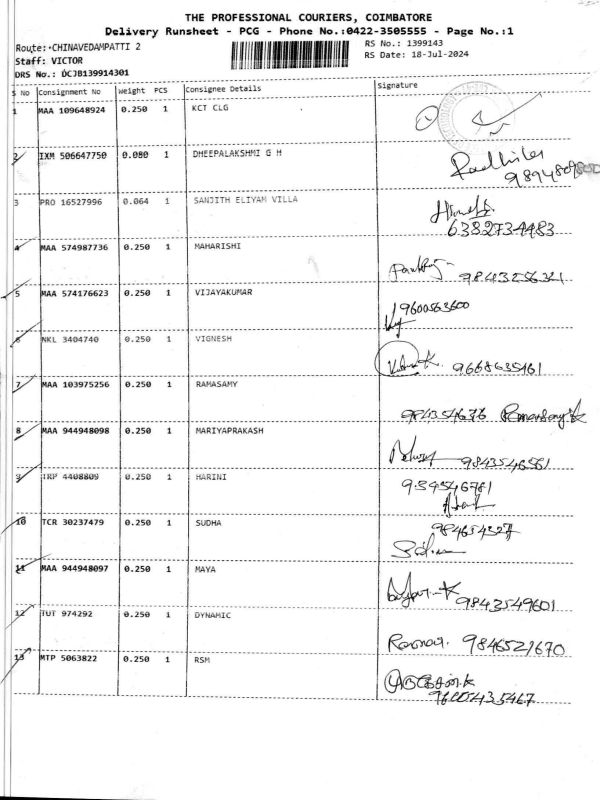 THE PROFESSIONAL COURIERS, COIMBATORE
Delivery Runsheet - PCG - Phone No.:0422-3505555 - Page No.:1
Route: CHINAVEDAMPATTI 2
RS No.: 1399143
Staff: VICTOR
RS Date: 18-Jul-2024
DRS No.: DCJB139914301
S No Consignment No Weight PCS Consignee Details Signature
1 MAA 109648924 0.250 1 KCT CLG
2 IXM 506647750 0.080 1 DHEEPALAKSHMI G H
3 PRO 16527996 0.064 1 SANJITH ELIYAM VILLA
6382734483
4 MAA 574987736 0.250 1 MAHARISHI
9843256321
5 MAA 574176623 0.250 1 VIJAYAKUMAR
9600563600
6 NKL 3404740 0.250 1 VIGNESH
9668635461
7 MAA 103975256 0.250 1 RAMASAMY
8 MAA 944948098 0.250 1 MARIYAPRAKASH
9843546561
9 TRP 4408809 0.250 1 HARINI
10 TCR 30237479 0.250 1 SUDHA
11 MAA 944948097 0.250 1 MAYA
9843549601
12 TUT 974292 0.250 1 DYNAMIC
9846521670
13 MTP 5063822 0.250 1 RSM